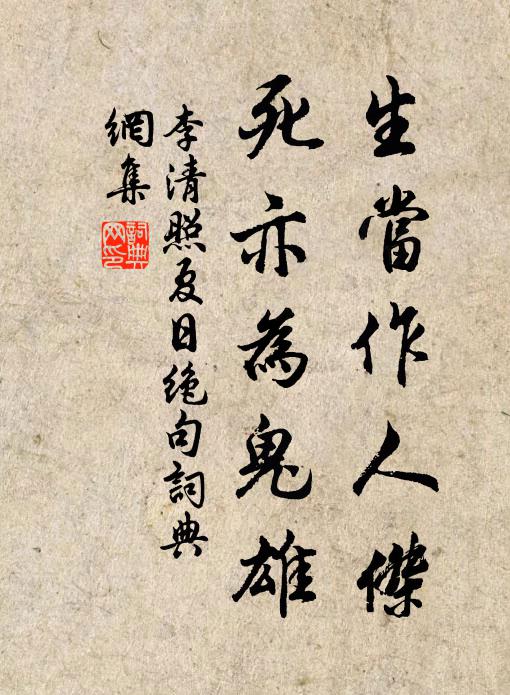 生當作人傑
死亦為鬼雄
李清照夏日絶句詞典
網集
詞典
网印